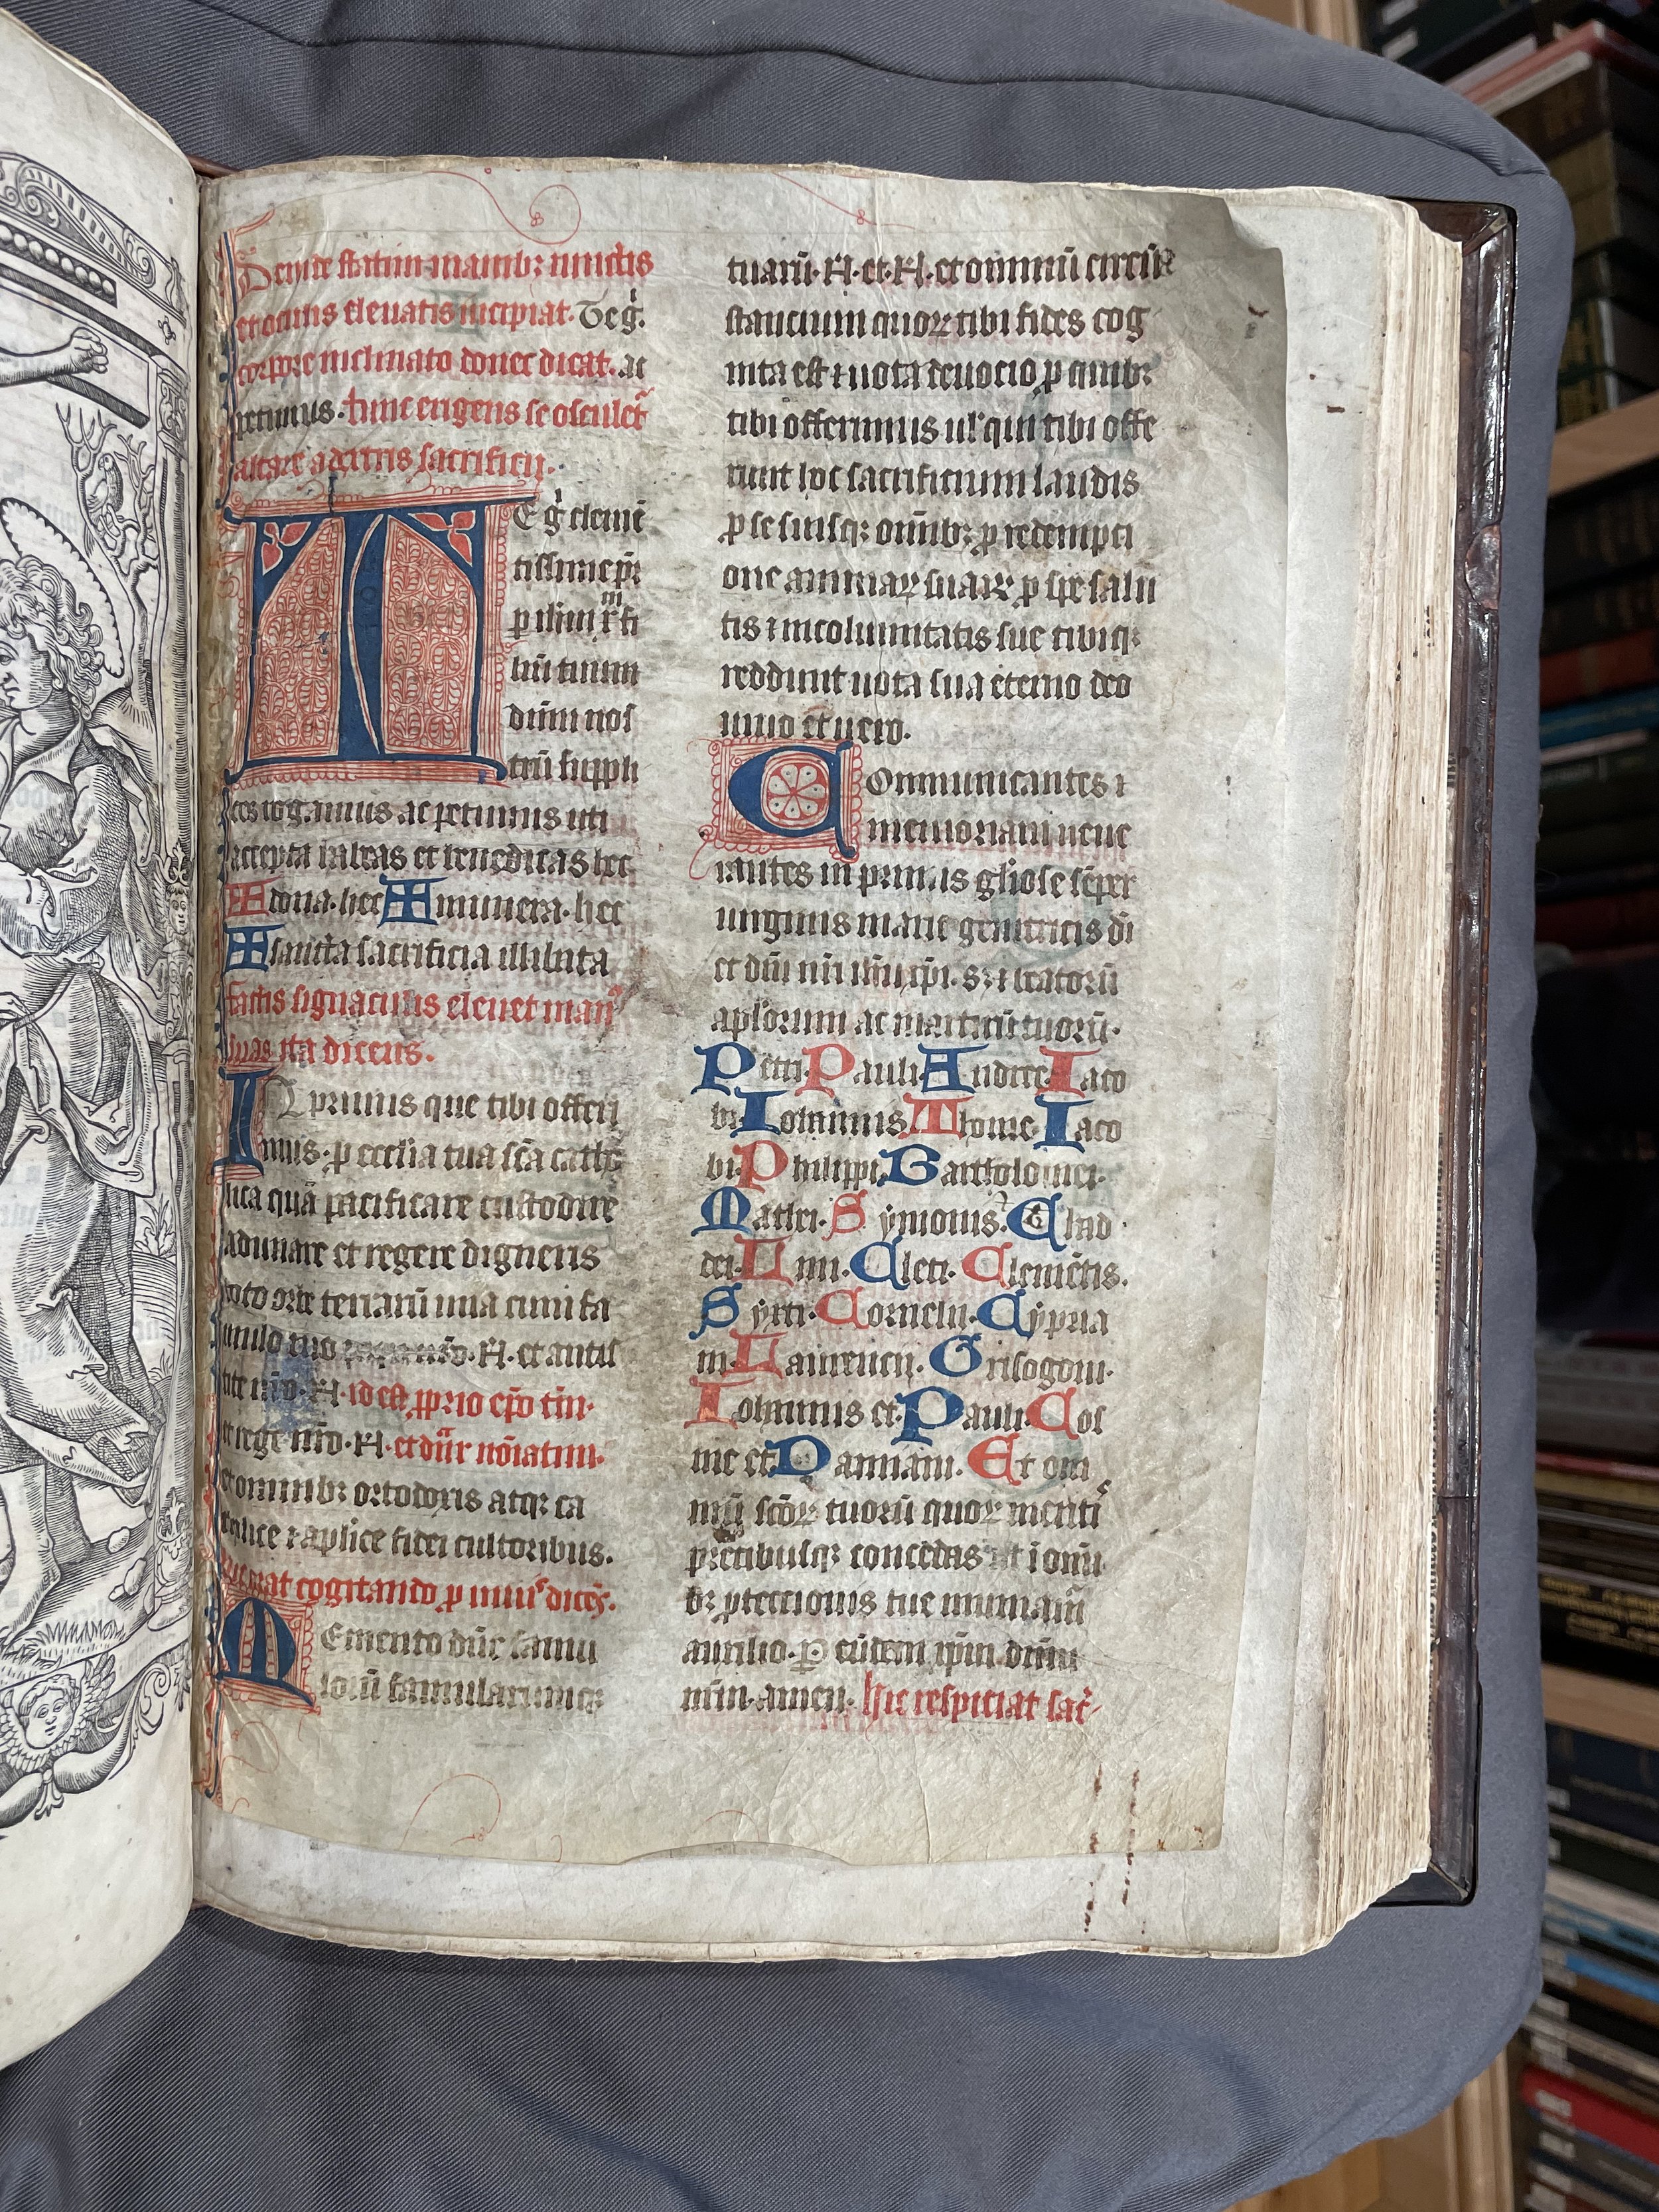 Deinde statim manibꝫ iunctis
et oculis eleuatis incipiat. Te gͥ.
corpore inclinato donec dicat. ac
petimus. hinc erigens se osculet᷑
altare a dextris sacrificii.
TE gͥ clemē
tissime pr̄
ꝑ ihm xͫ fi
liū tuum
dnm̄ nos
trū suppli
ces rogamus ac petimus uti
accepta habeas et benedicas hec
✠ dona. hec ✠ munera. hec
✠ sancta sacrificia illibata
factis signaculis eleuet manꝰ
suas ita dicens.
IN primis que tibi offeri
mus. ꝑ ecclesia tua scā catho
lica quā pacificare custodire
adunare et regere digneris
toto orbe terrarū una cum fa
mulo tuo .N. et antis
tite nr̄o .N. id est ꝓprio ep̄o tm̄.
et rege nr̄o .N. et dn̄r noīatim.
et omnibꝫ ortodoxis atqꝫ ca
tholice ⁊ aplice fidei cultoribus.
cogitando ꝓ uiuis dicēs.
MEmento dn̄e famu
lorū famularumqꝫ
tuarū .N. et .N. et omniū circū
stancium quoꝝ tibi fides cog
nita est ⁊ nota deuocio ꝓ quibꝫ
tibi offerimus ul' qui tibi offe
runt hoc sacrificium laudis
ꝓ se suisqꝫ omībꝫ ꝓ redempti
one animaꝝ suaꝝ ꝓ spe salu
tis ⁊ incolumitatis sue tibiqꝫ
reddunt uota sua eterno deo
uiuo et uero.
COmmunicantes ⁊
memoriam uene
rantes in primis gliose sēper
uirginis marie genitricis di
et dn̄i nr̄i ih̄u xp̄i. sꝫ ⁊ beatorū
apl'orum ac martirū tuorū.
Petri. Pauli. Andree. Iaco
bi. Iohannis. Thome. Iaco
bi. Philippi. Bartholomei.
Mathei. Symonis. ⁊ Thad
dei. Lini. Cleti. Clemētis.
Syxti. Cornelii. Cypria
ni. Laurencii. Grisogoni.
Iohannis et. Pauli. Cos
me et. Damiani. Et om
niū scōꝝ tuorū quoꝝ meritis
precibusqꝫ concedas ut ī omī
bꝫ ꝓteccionis tue muniam᷑
auxilio. ꝑ eūdem xp̄m dnm̄
nr̄m. amen. hic respiciat sac̄.